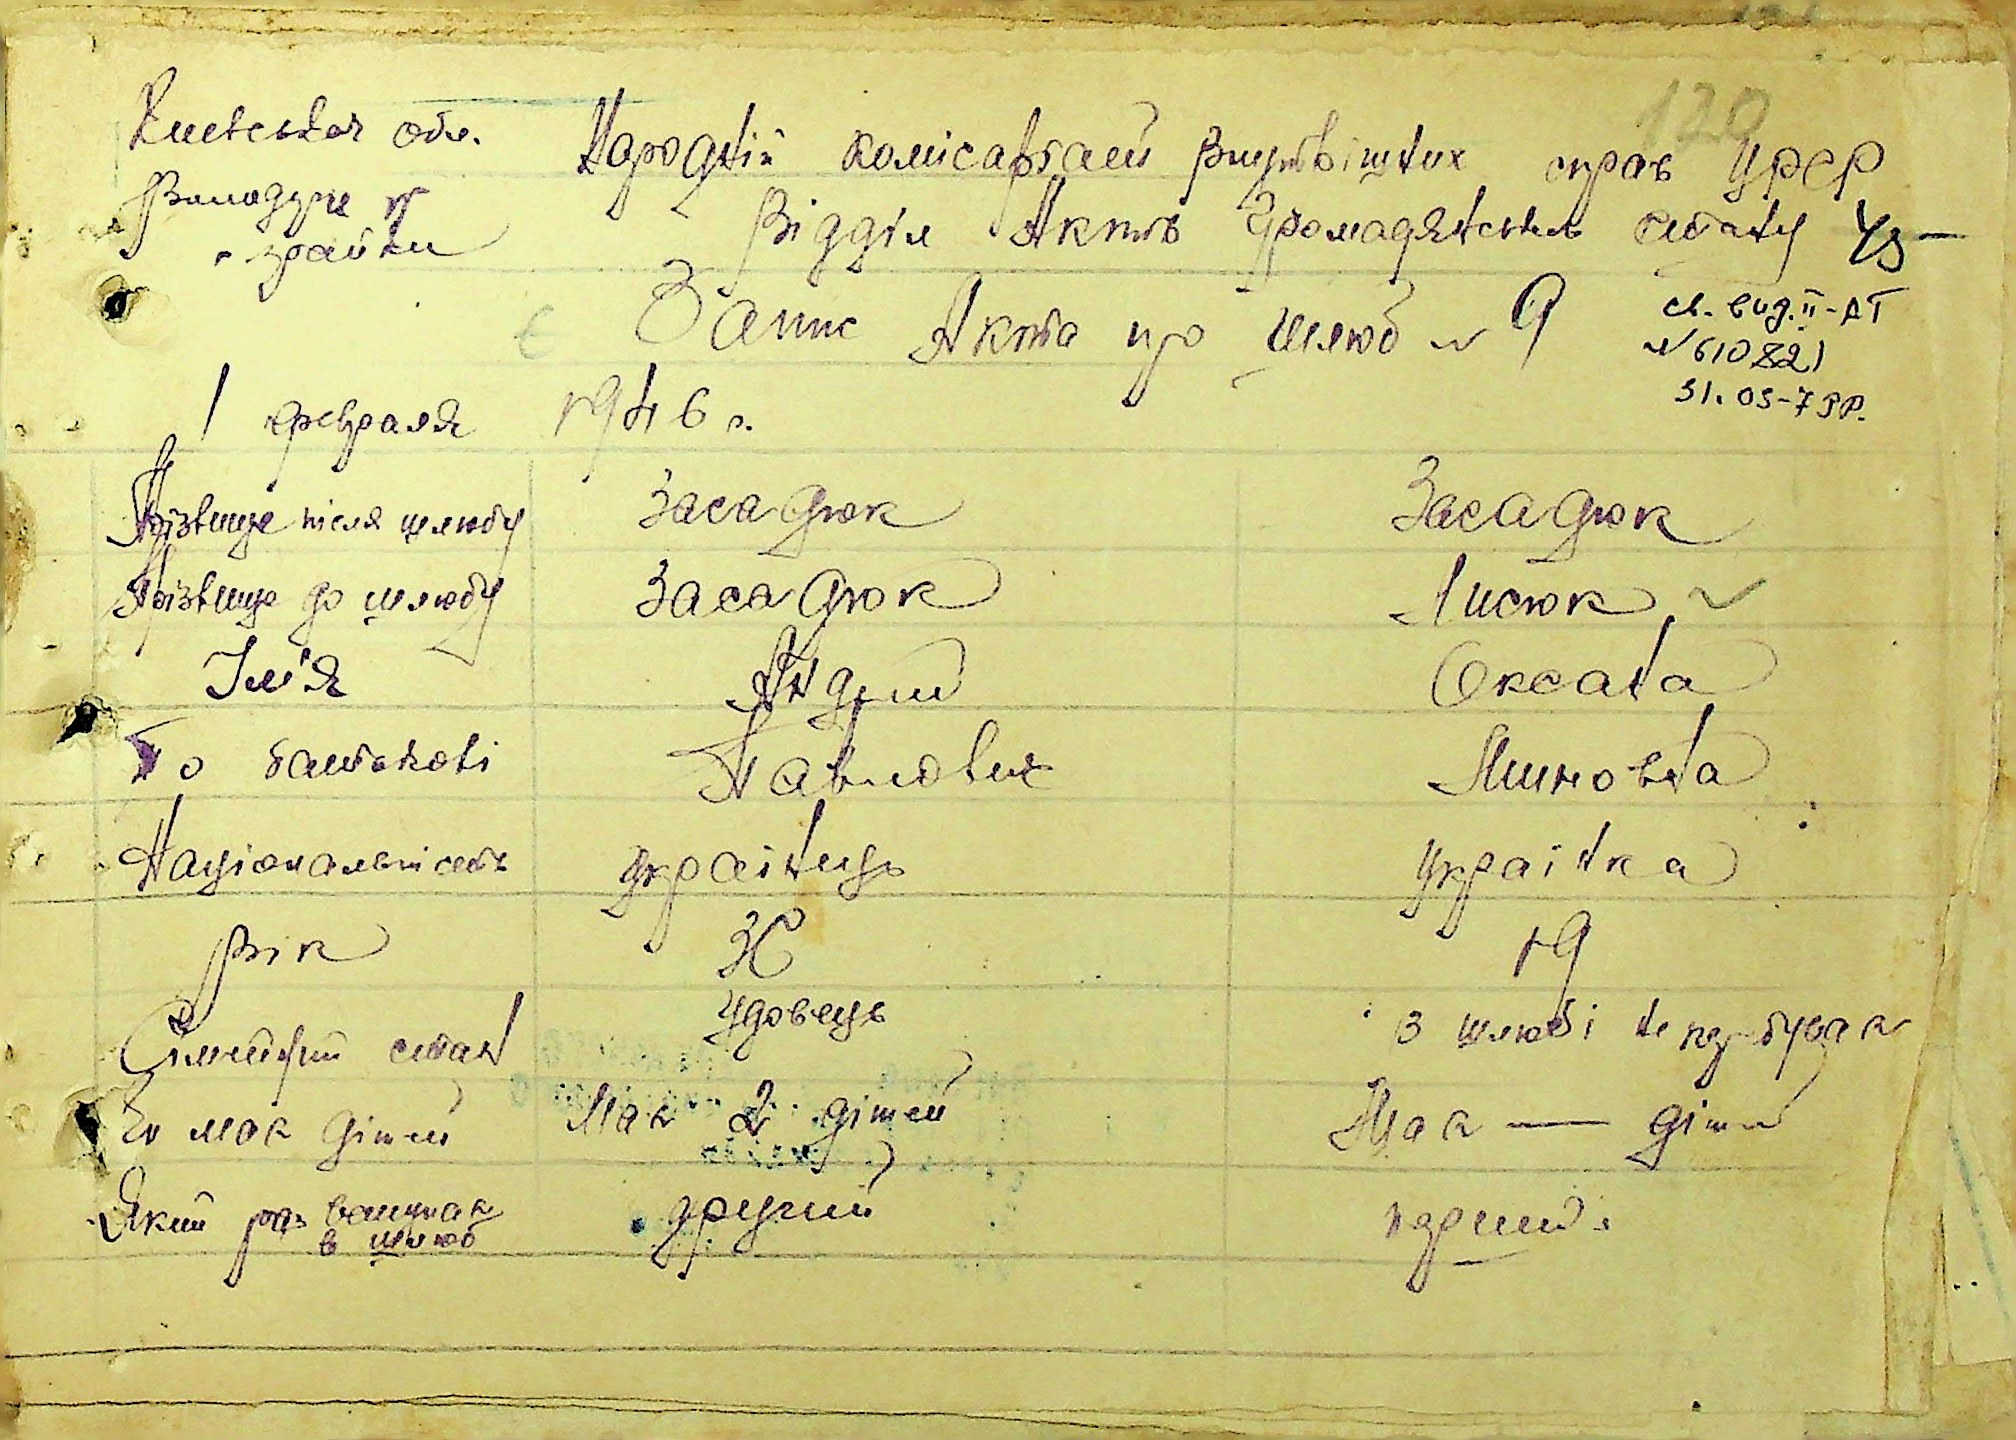 Киевськая обл.
Володарск
района
120
Народній комісарбат Внутрішніх справ УРСР
Відділ Актів Громадянських стану
Запис Акта про шлюб № 9
св. вид. ІІ-АТ
№ 610221
1 февраля 1946 г.
Прізвище після шлюбу Засадюк Засадюк
Прізвище до шлюбу Засадюк Лисюк
Ім'я Андрий Оксана
По батькові Павлович
Національність українець українка
Вік 36 19
Сімейний стан Удовець В шлюбі не перебувае
Чи мае дітей Мае 2 дітей Мае — діти
Який раз вступае в шлюб другий перший.